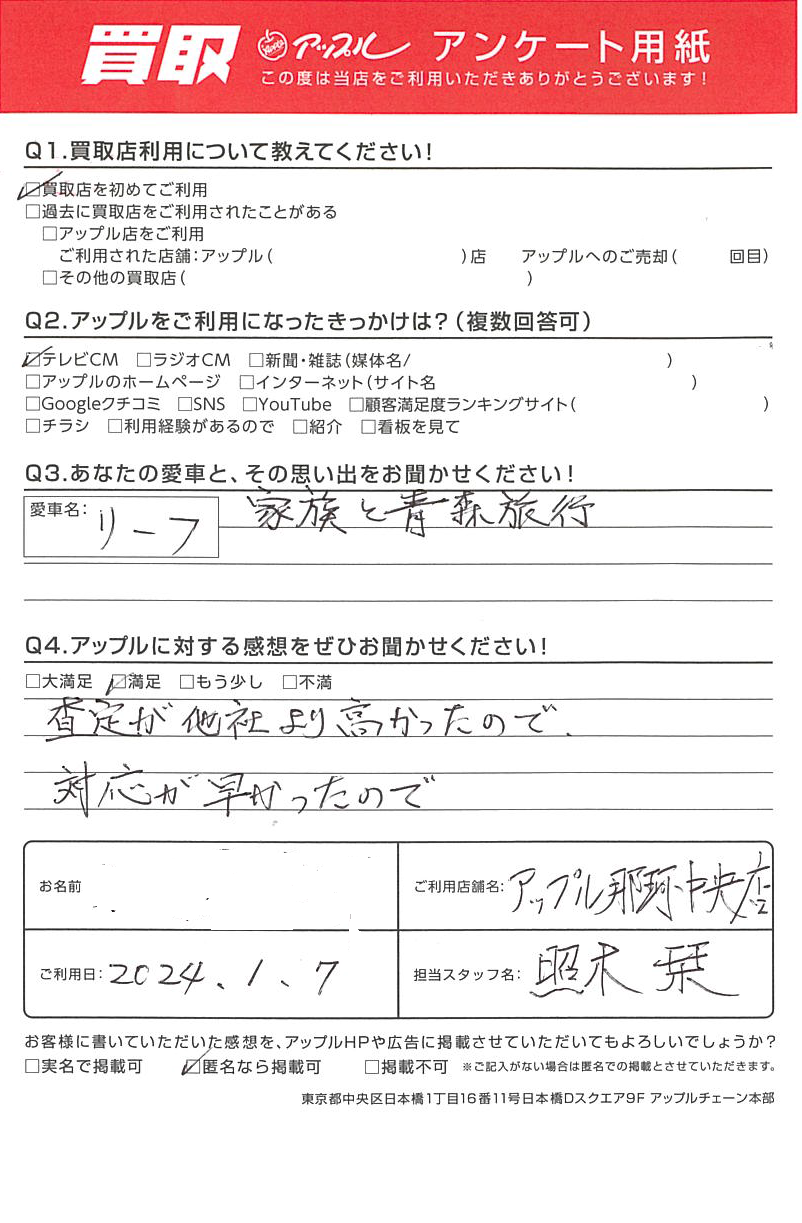 買取 アップル アンケート用紙
この度は当店をご利用いただきありがとうございます!
Q1.買取店利用について教えてください!
☑買取店を初めてご利用
□過去に買取店をご利用されたことがある
□アップル店をご利用
ご利用された店舗:アップル( )店 アップルへのご売却( 回目)
□その他の買取店( )
Q2.アップルをご利用になったきっかけは?(複数回答可)
☑テレビCM □ラジオCM □新聞・雑誌(媒体名/ )
□アップルのホームページ □インターネット(サイト名 )
□Googleクチコミ □SNS □YouTube □顧客満足度ランキングサイト( )
□チラシ □利用経験があるので □紹介 □看板を見て
Q3.あなたの愛車と、その思い出をお聞かせください!
愛車名: リーフ 家族と青森旅行
Q4.アップルに対する感想をぜひお聞かせください!
□大満足 ☑満足 □もう少し □不満
査定が他社より高かったので、
対応が早かったので
お名前 ご利用店舗名:アップル那珂中央店
ご利用日:2024、1、7 担当スタッフ名:照木 栞
お客様に書いていただいた感想を、アップルHPや広告に掲載させていただいてもよろしいでしょうか?
□実名で掲載可 ☑匿名なら掲載可 □掲載不可 ※ご記入がない場合は匿名での掲載とさせていただきます。
東京都中央区日本橋1丁目16番11号日本橋Dスクエア9F アップルチェーン本部